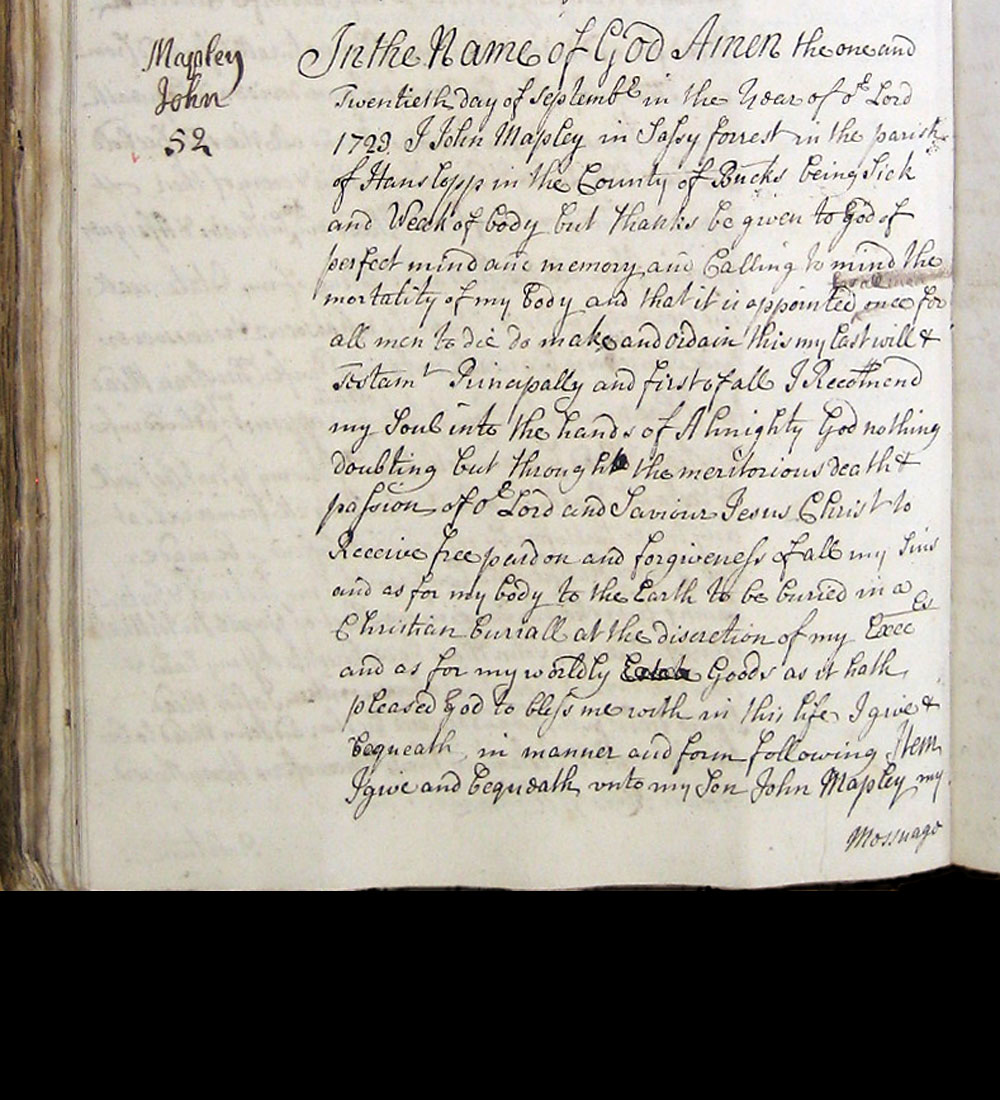 Mapley
John
52
In the Name of God Amen the one and
Twentieth day of Septembr in the Year of or Lord
1723 I John Mapley in Sassy forrest in the parish
of Hanslopp in the County of Bucks being Sick
and Weak of body but thanks be given to God of
perfect mind and memory and Calling to mind the
mortality of my body and that it is appointed once for
all men to die do make and ordain this my Last will &
Testamt Principally and first of all I Recomend
my Soul into the hands of Almighty God nothing
doubting but through the meritorious death &
passion of or Lord and Saviour Jesus Christ to
Receive free pardon and forgiveness of all my Sins
and as for my body to the Earth to be buried in a
Christian burrall at the discretion of my Execes
and as for my worldly Goods as it hath
pleased God to bless me with in this life I give &
bequeath in manner and form following Item
I give and bequeath unto my Son John Mapley my